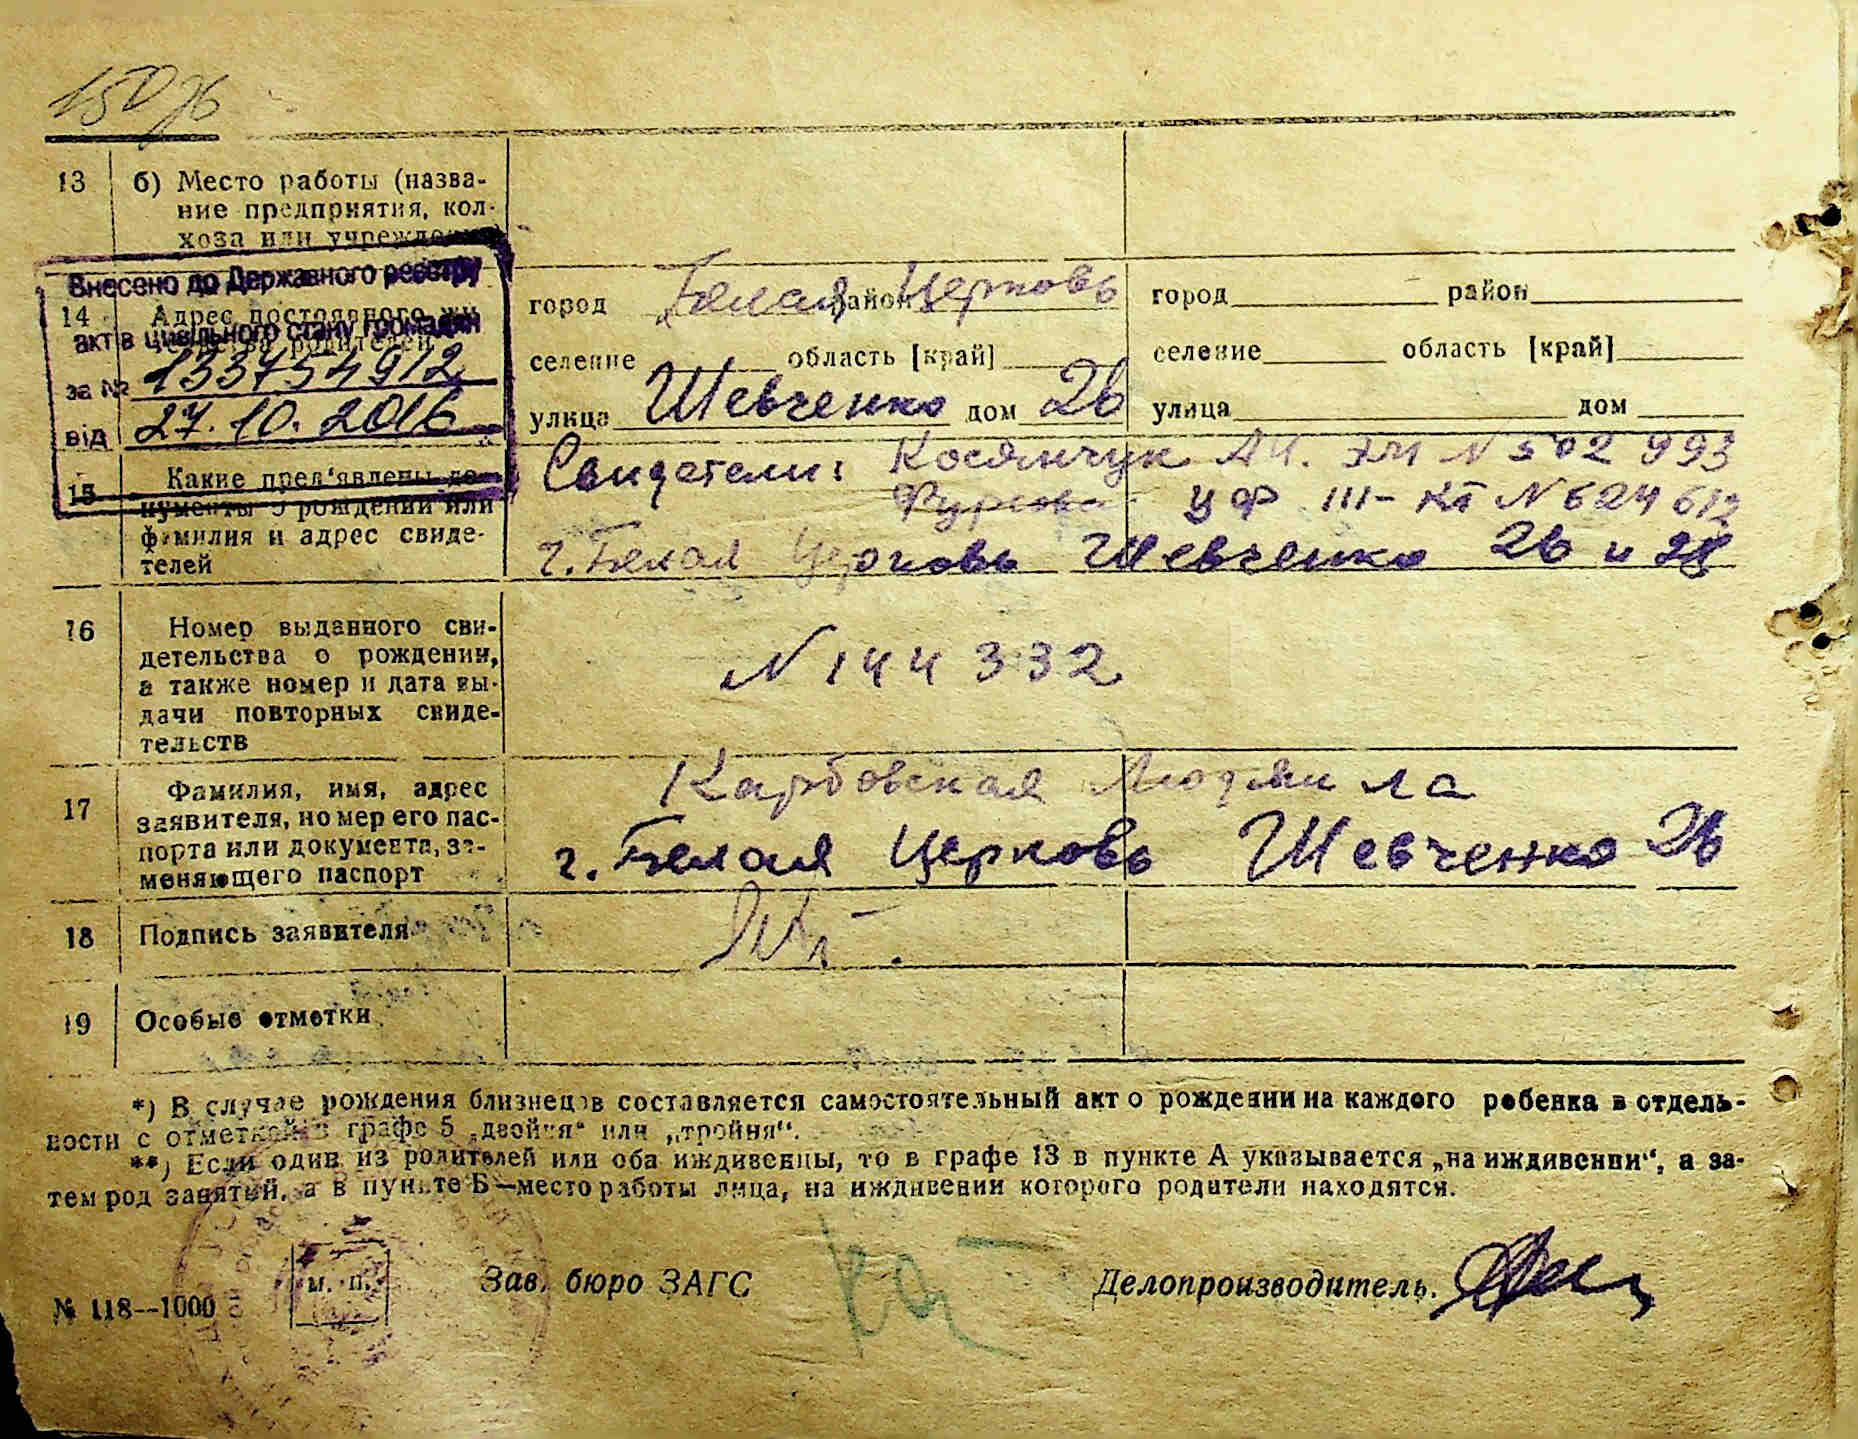 150
13 б) Место работы (назва-
ние предприятия, кол-
хоза или учреждения)
Внесено до Державного реєстру
актів цивільного стану громадян
за № 1337754912
від 27.10.2016
14 Адрес постоянного жи-
тельства родителей
город Белая Церковь район
селение область [край]
улица Шевченко дом 26
город район
селение область [край]
улица дом
15 Какие пред'явлены до-
кументы о рождении или
фамилия и адрес свиде-
телей
Свидетели: Косянчук А.И. ЭМ N 502 993
Фурсова ЦФ III- КА N 624 612
г. Белая Церковь Шевченко 26 и 28
16 Номер выданного сви-
детельства о рождении,
а также номер и дата вы-
дачи повторных свиде-
тельств
N 144332
17 Фамилия, имя, адрес
заявителя, номер его пас-
порта или документа, за-
меняющего паспорт
Карбовская Людмила
г. Белая Церковь Шевченко 26
18 Подпись заявителя
19 Особые отметки
*) В случае рождения близнецов составляется самостоятельный акт о рождении на каждого ребенка в отдель-
ности с отметкой в графе 5 „двойня“ или „тройня“.
**) Если один из родителей или оба иждивенцы, то в графе 13 в пункте А указывается „на иждивении“, а за-
тем род занятий, а в пункте Б—место работы лица, на иждивении которого родители находятся.
м. п.
Зав. бюро ЗАГС
Делопроизводитель.
№ 118--1000